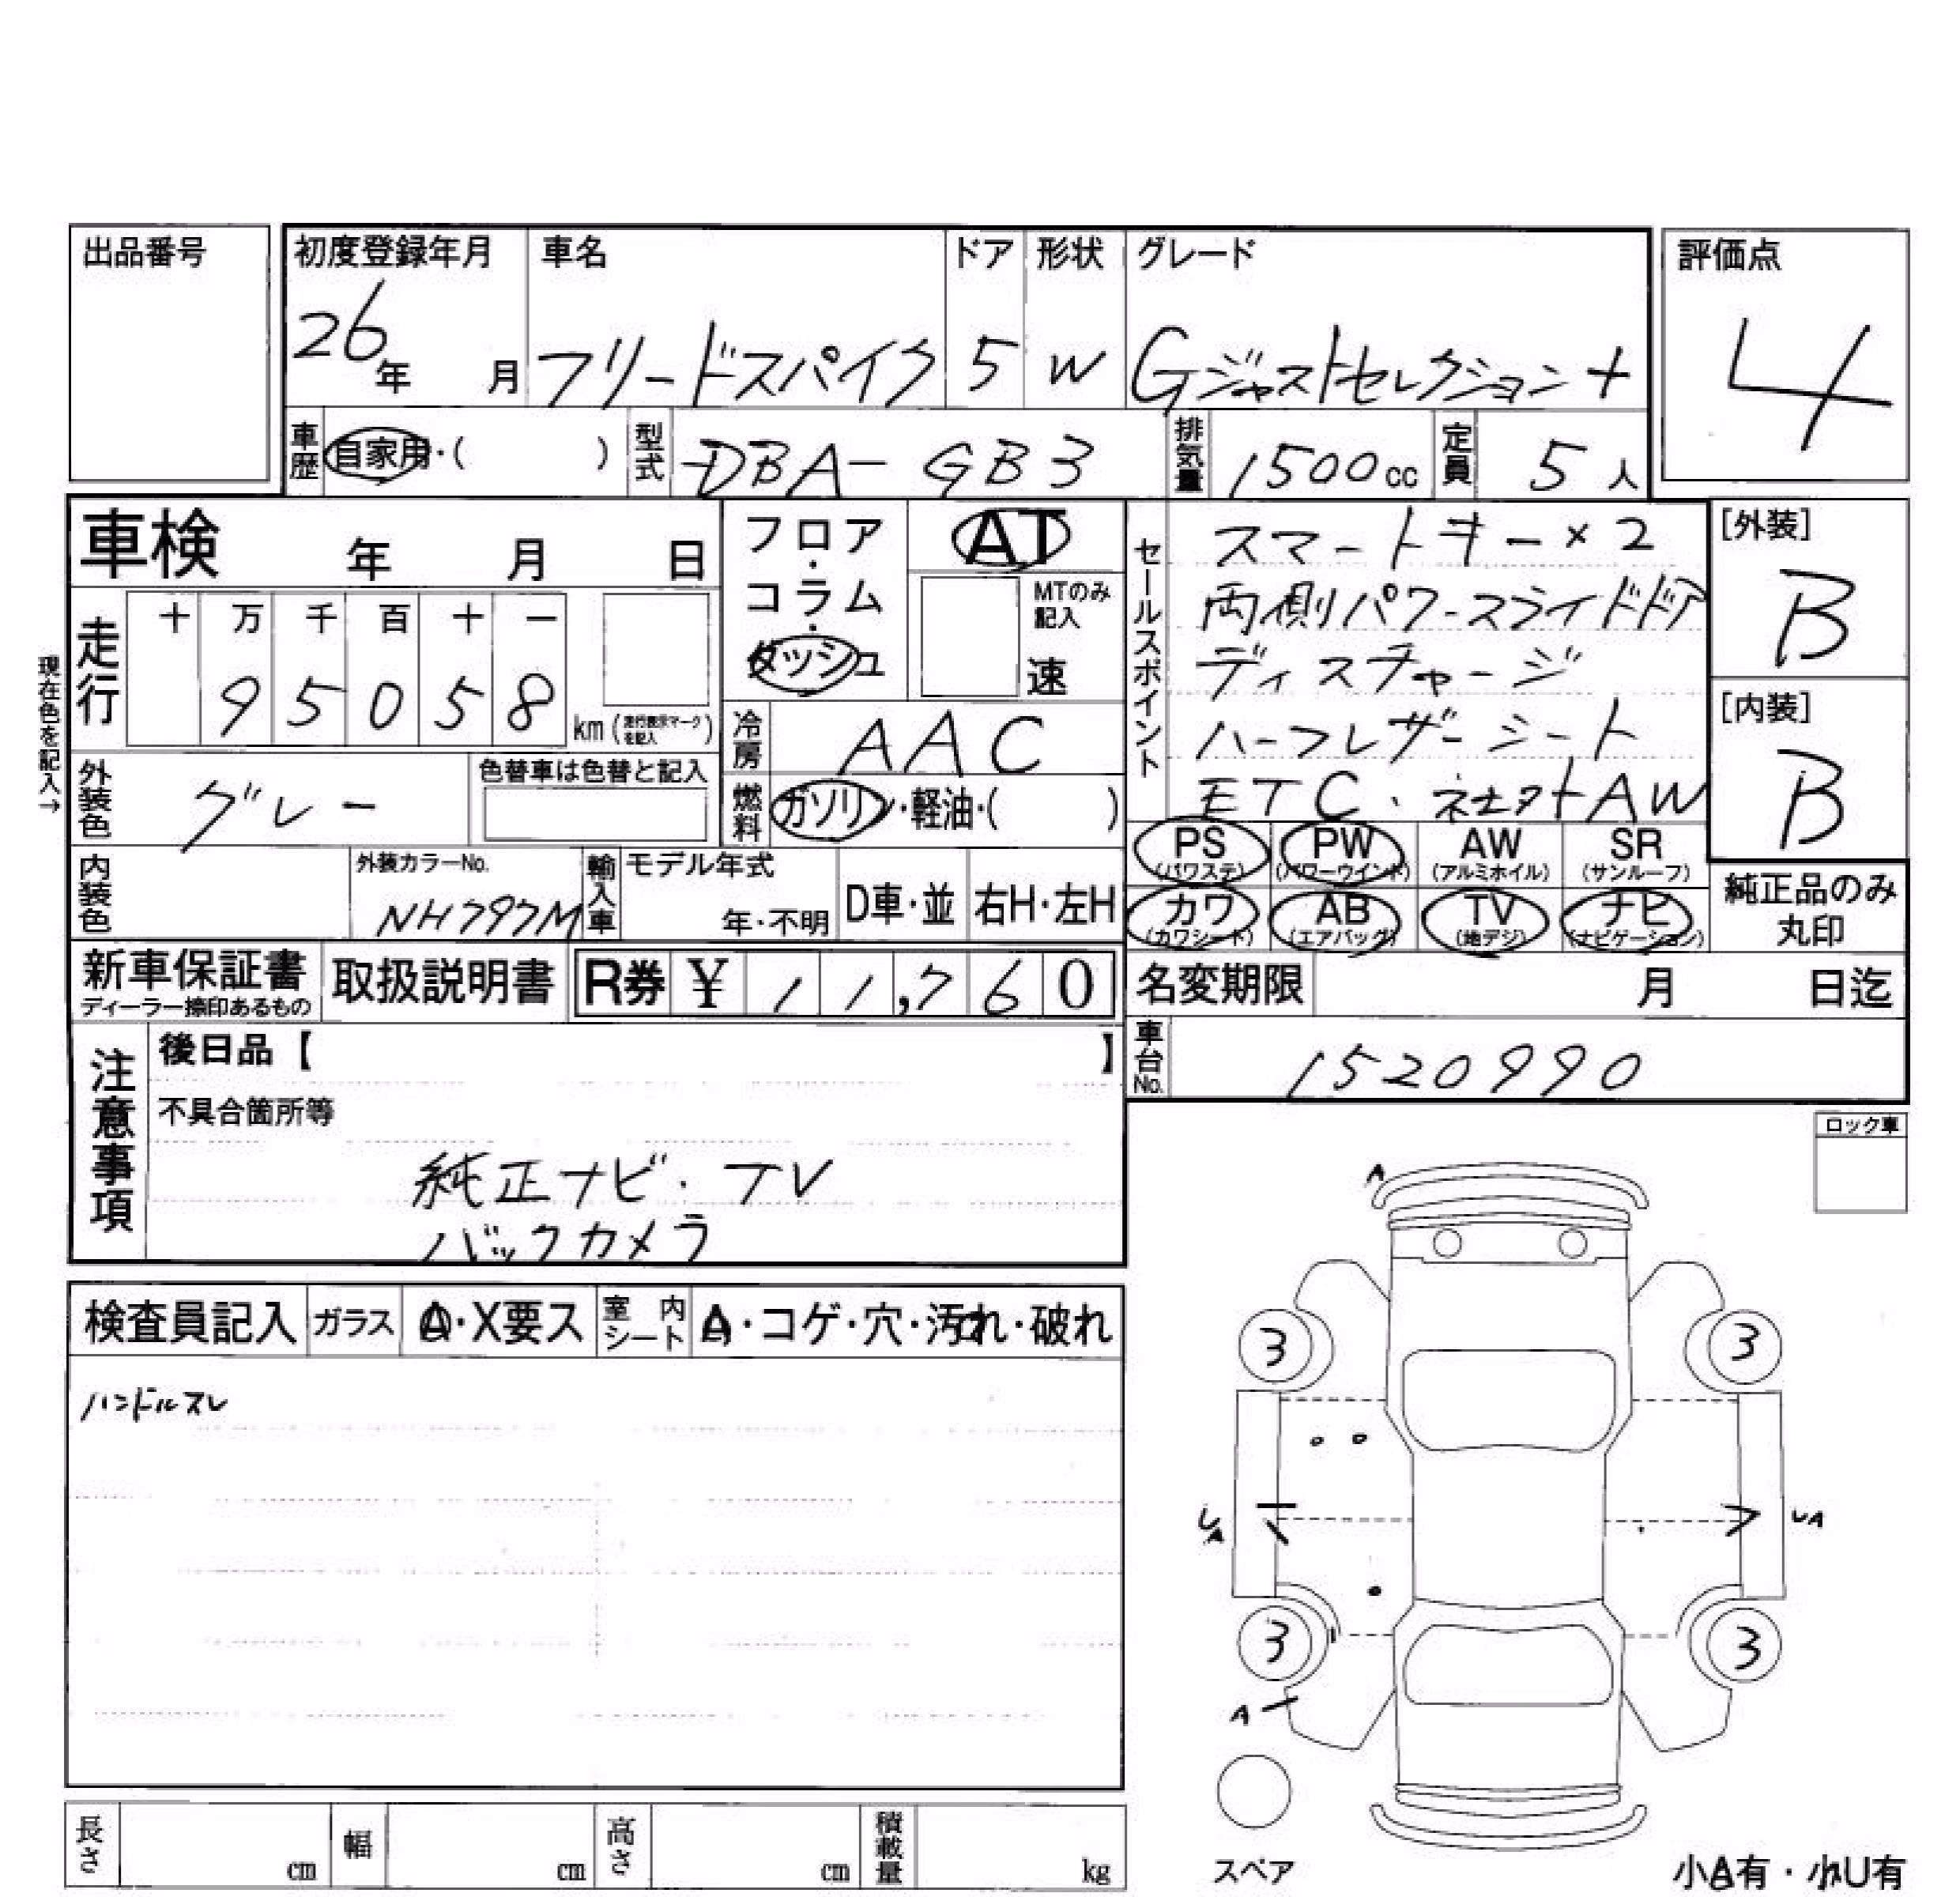 出品番号
初度登録年月 車名 ドア 形状 グレード 評価点
26年 月 フリードスパイク 5 W Gジャストセレクション+ 4
車歴 自家用・( ) 型式 DBA-GB3 排気量 1500cc 定員 5人
車検 年 月 日
フロア・コラム・ダッシュ
AT
MTのみ記入
速
セールスポイント
スマートキー×2
両側パワースライドドア
ディスチャージ
ハーフレザーシート
ETC、社外AW
[外装]
B
[内装]
B
現在色を記入→
走行 十 万 千 百 十 一
95058 km (走行表示マークを記入)
冷房 AAC
外装色 グレー 色替車は色替と記入
燃料 ガソリン・軽油・( )
PS (パワステ) PW (パワーウインド) AW (アルミホイル) SR (サンルーフ)
カワ (カワシート) AB (エアバッグ) TV (地デジ) ナビ (ナビゲーション)
純正品のみ丸印
内装色 外装カラーNo. NH797M 輸入車 モデル年式 年・不明 D車・並 右H・左H
新車保証書 ディーラー捺印あるもの 取扱説明書 R券 ¥ 11,760
名変期限 月 日迄
車台No. 1520990
注意事項
後日品【 】
不具合箇所等
純正ナビ・TV
バックカメラ
ロック車
検査員記入 ガラス A・X要ス 室内シート A・コゲ・穴・汚れ・破れ
ハンドルスレ
A
3 3
UA UA
3 3
A
スペア
長さ cm 幅 cm 高さ cm 積載量 kg
小A有・小U有